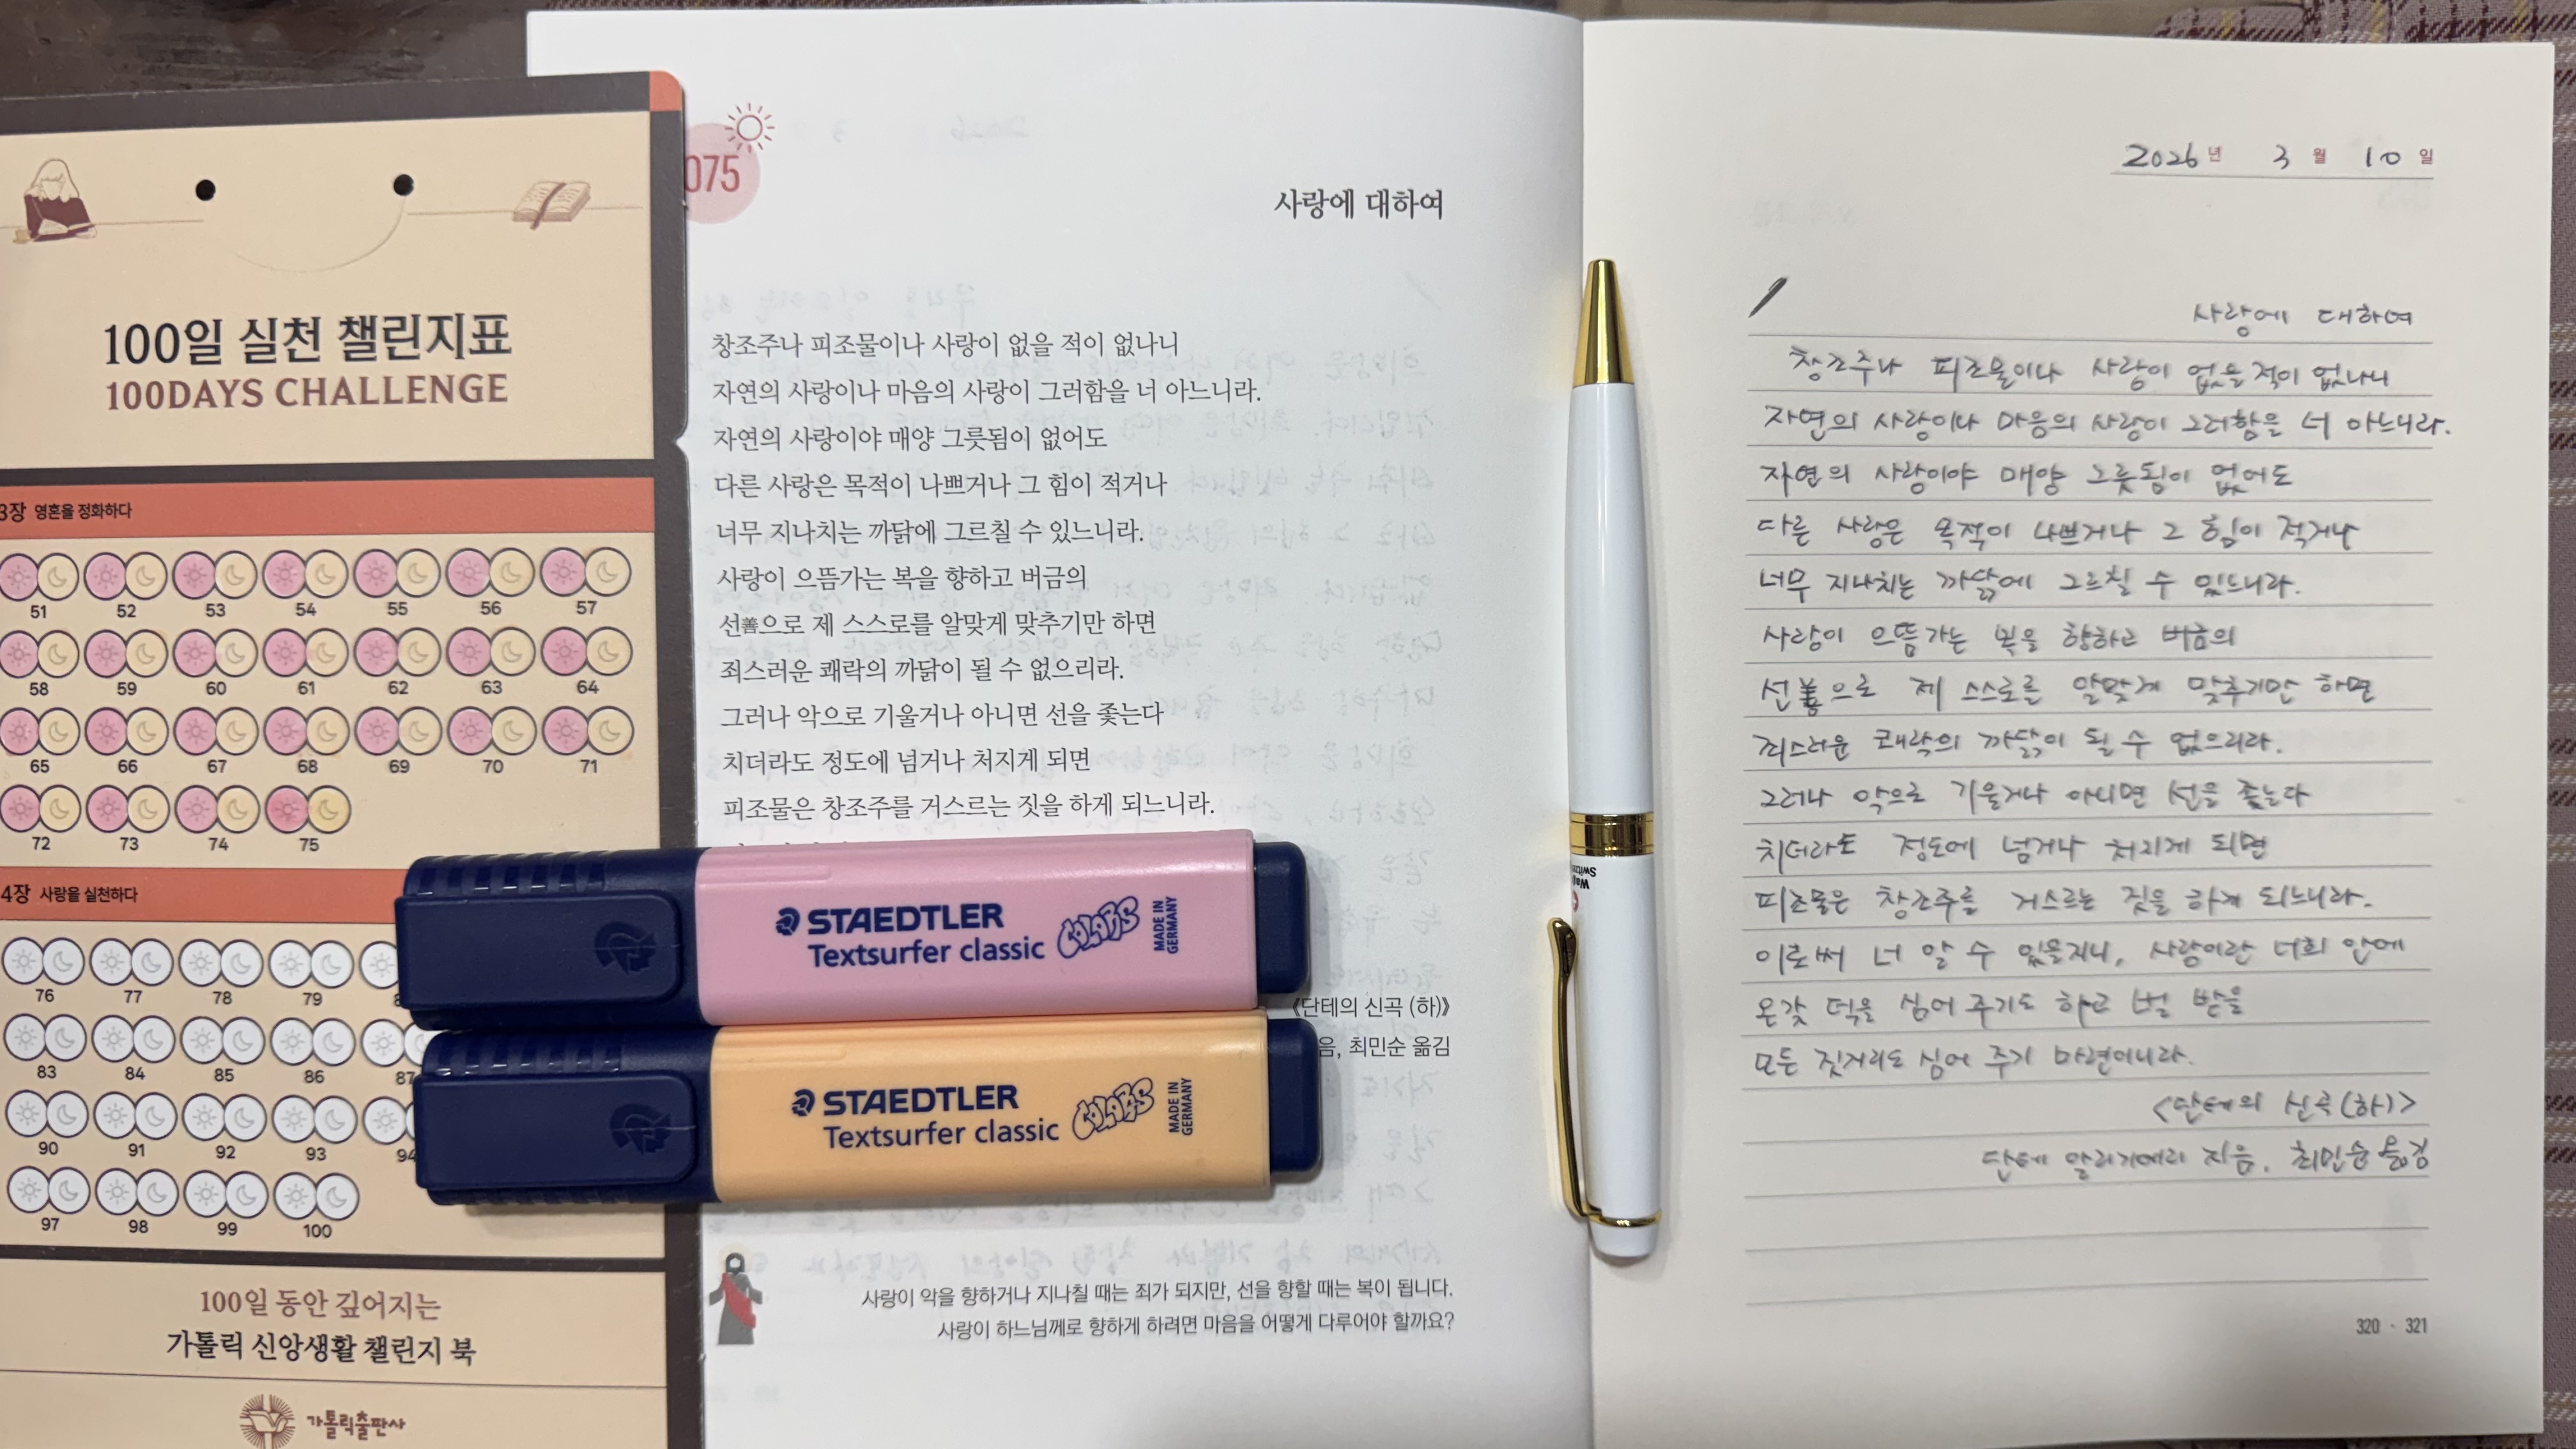 100일 실천 챌린지표
100DAYS CHALLENGE
3장 영혼을 정화하다
51 52 53 54 55 56 57
58 59 60 61 62 63 64
65 66 67 68 69 70 71
72 73 74 75
4장 사랑을 실천하다
76 77 78 79
83 84 85 86 87
90 91 92 93 94
97 98 99 100
100일 동안 깊어지는
가톨릭 신앙생활 챌린지 북
가톨릭출판사
075
사랑에 대하여
창조주나 피조물이나 사랑이 없을 적이 없나니
자연의 사랑이나 마음의 사랑이 그러함을 너 아느니라.
자연의 사랑이야 매양 그릇됨이 없어도
다른 사랑은 목적이 나쁘거나 그 힘이 적거나
너무 지나치는 까닭에 그르칠 수 있느니라.
사랑이 으뜸가는 복을 향하고 버금의
선善으로 제 스스로를 알맞게 맞추기만 하면
죄스러운 쾌락의 까닭이 될 수 없으리라.
그러나 악으로 기울거나 아니면 선을 좇는다
치더라도 정도에 넘거나 처지게 되면
피조물은 창조주를 거스르는 짓을 하게 되느니라.
STAEDTLER
Textsurfer classic
COLORS
MADE IN
GERMANY
STAEDTLER
Textsurfer classic
COLORS
MADE IN
GERMANY
《단테의 신곡 (하)》
음, 최민순 옮김
사랑이 악을 향하거나 지나칠 때는 죄가 되지만, 선을 향할 때는 복이 됩니다.
사랑이 하느님께로 향하게 하려면 마음을 어떻게 다루어야 할까요?
2026년 3월 10일
사랑에 대하여
창조주나 피조물이나 사랑이 없을 적이 없나니
자연의 사랑이나 마음의 사랑이 그러함을 너 아느니라.
자연의 사랑이야 매양 그릇됨이 없어도
다른 사랑은 목적이 나쁘거나 그 힘이 적거나
너무 지나치는 까닭에 그르칠 수 있느니라.
사랑이 으뜸가는 복을 향하고 버금의
선善으로 제 스스로를 알맞게 맞추기만 하면
죄스러운 쾌락의 까닭이 될 수 없으리라.
그러나 악으로 기울거나 아니면 선을 좇는다
치더라도 정도에 넘거나 처지게 되면
피조물은 창조주를 거스르는 짓을 하게 되느니라.
이로써 너 알 수 있을지니, 사랑이란 너희 안에
온갖 덕을 심어 주기도 하고 벌 받을
모든 짓거리도 심어 주기 마련이니라.
<단테의 신곡(하)>
단테 알리기에리 지음, 최민순 옮김
320 · 321